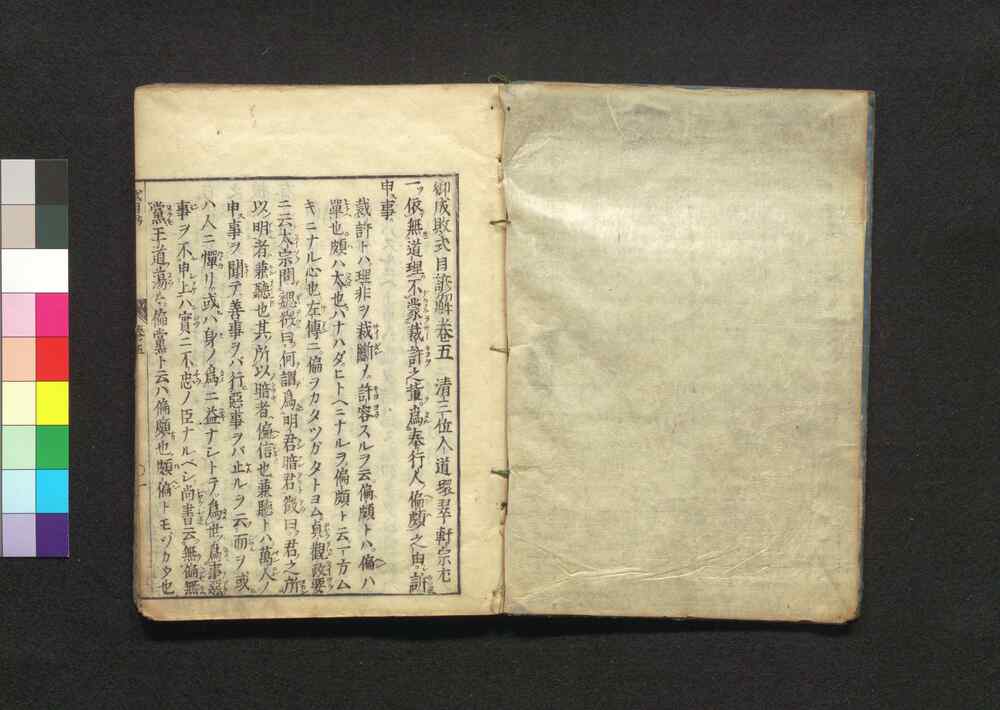 御成敗式目諺解卷五 清三位入道環翠軒宗尤
一依無道理不蒙裁許之輩為奉行人偏頗之由訴
申事
裁許トハ理非ヲ裁斷ノ許容スルヲ云偏頗トハ偏ハ
單也頗ハ太也ハナハダヒトヘニナルヲ偏頗ト云一方ム
キニナル心也左傳ニ偏ヲカタツガタトヨム貞觀政要
ニ云太宗問魏徴曰何謂為明君暗君徴曰君之所
以明者兼聽也其所以暗者偏信也兼聽トハ萬人ノ
申事ヲ聞テ善事ヲバ行惡事ヲバ止ルヲ云而ヲ或
ハ人ニ憚リ或ハ身ノ為ニ益ナシトテ為世為事惡
事ヲ不申上ハ實ニ不忠ノ臣ナルベシ尚書云無偏無
黨王道蕩々偏黨ト云ハ偏頗也類偏トモソカタ也
卷五